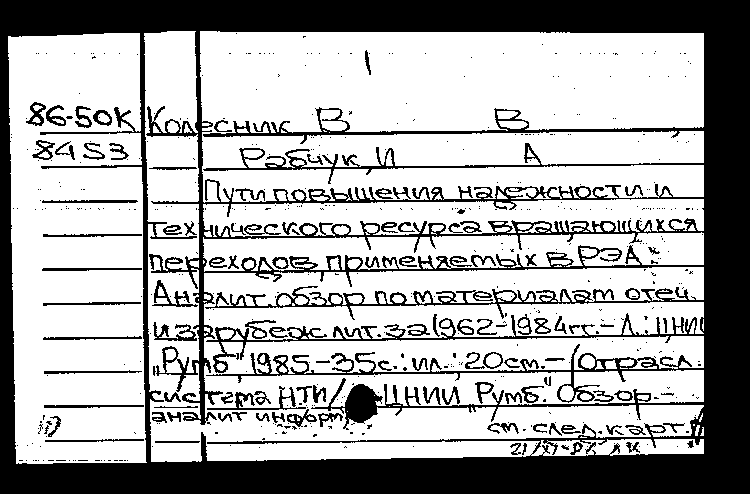 1
86-50К Колесник, В В ,
8453 Рабчук, И А
Пути повышения надежности и
технического ресурса вращающихся
переходов, применяемых в РЭА:
Аналит. обзор по материалам отеч.
и зарубеж лит. за 1962-1984 гг. - Л.: ЦНИИ
"Румб", 1985. - 35с.: ил.; 20см. - (Отрасл.
система НТИ/ ЦНИИ "Румб". Обзор. -
аналит информ)
10 см. след. карт.